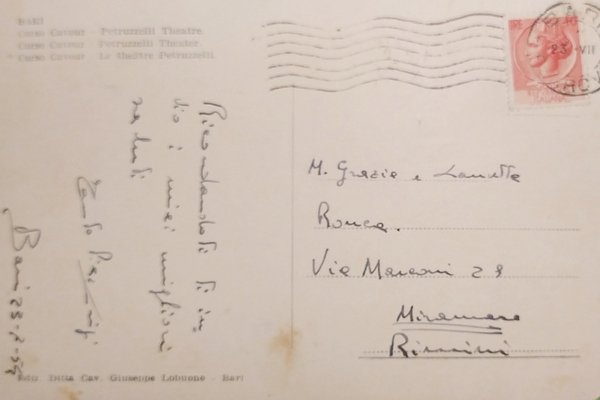 BARI
Corso Cavour - Petruzzelli Theatre
Corso Cavour - Petruzzelli Theater.
Corso Cavour - Le théâtre Petruzzelli
BARI
23 VII
Ricordandoti ti in
vio i miei migliori
saluti
Pier Luigi
Bari 23-7-
M. Grazia e
Ronca.
Via Marconi 28
Miramare
Rimini
Foto. Ditta Cav. Giuseppe Lobuono - Bari